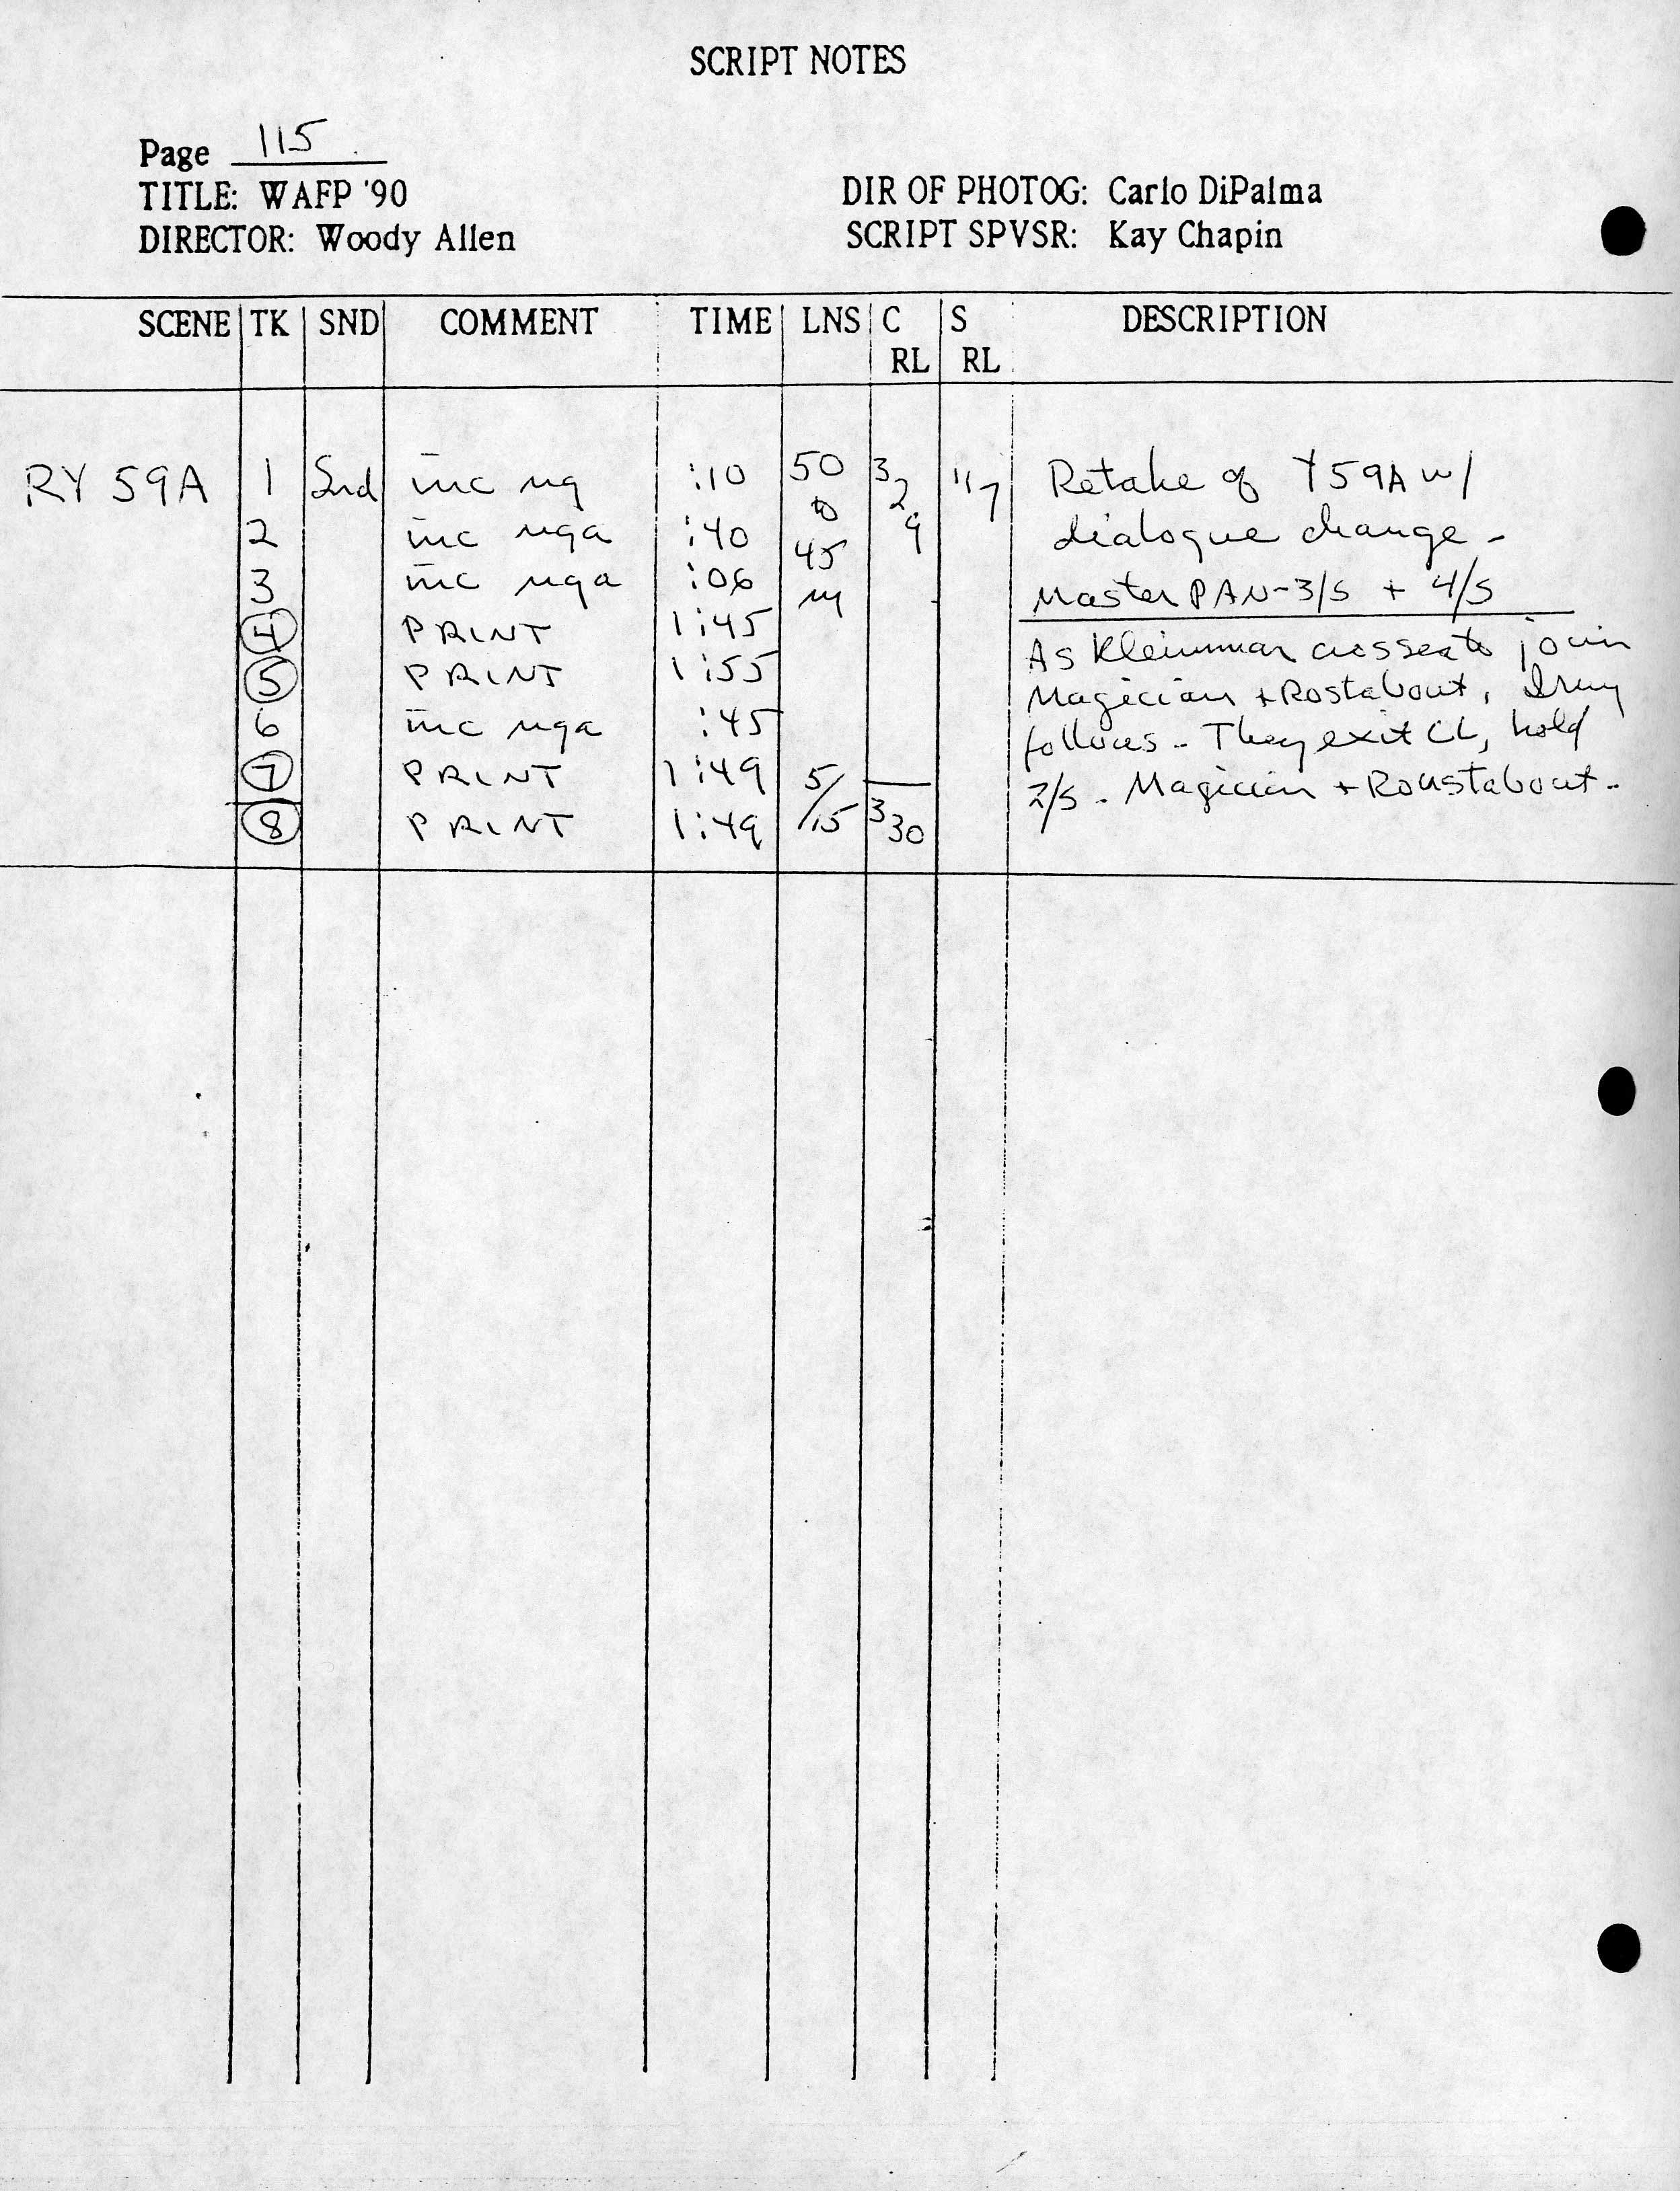 SCRIPT NOTES
Page 115
TITLE: WAFP '90
DIRECTOR: Woody Allen
DIR OF PHOTOG: Carlo DiPalma
SCRIPT SPVSR: Kay Chapin
SCENE TK SND COMMENT TIME LNS C RL S RL DESCRIPTION
RY 59A 1 Snd inc ng :10 50 329 117 Retake of Y59A w/
2 inc nga :40 45 dialogue change -
3 inc nga :06 m Master PAN-3/S + 4/S
4 PRINT 1:45 As Kleinman crosses to join
5 PRINT 1:55 Magician + Rostabout, Irmy
6 inc nga :45 follows - They exit CL, hold
7 PRINT 1:49 5/ 2/S - Magician + Roustabout -
8 PRINT 1:49 /15 330